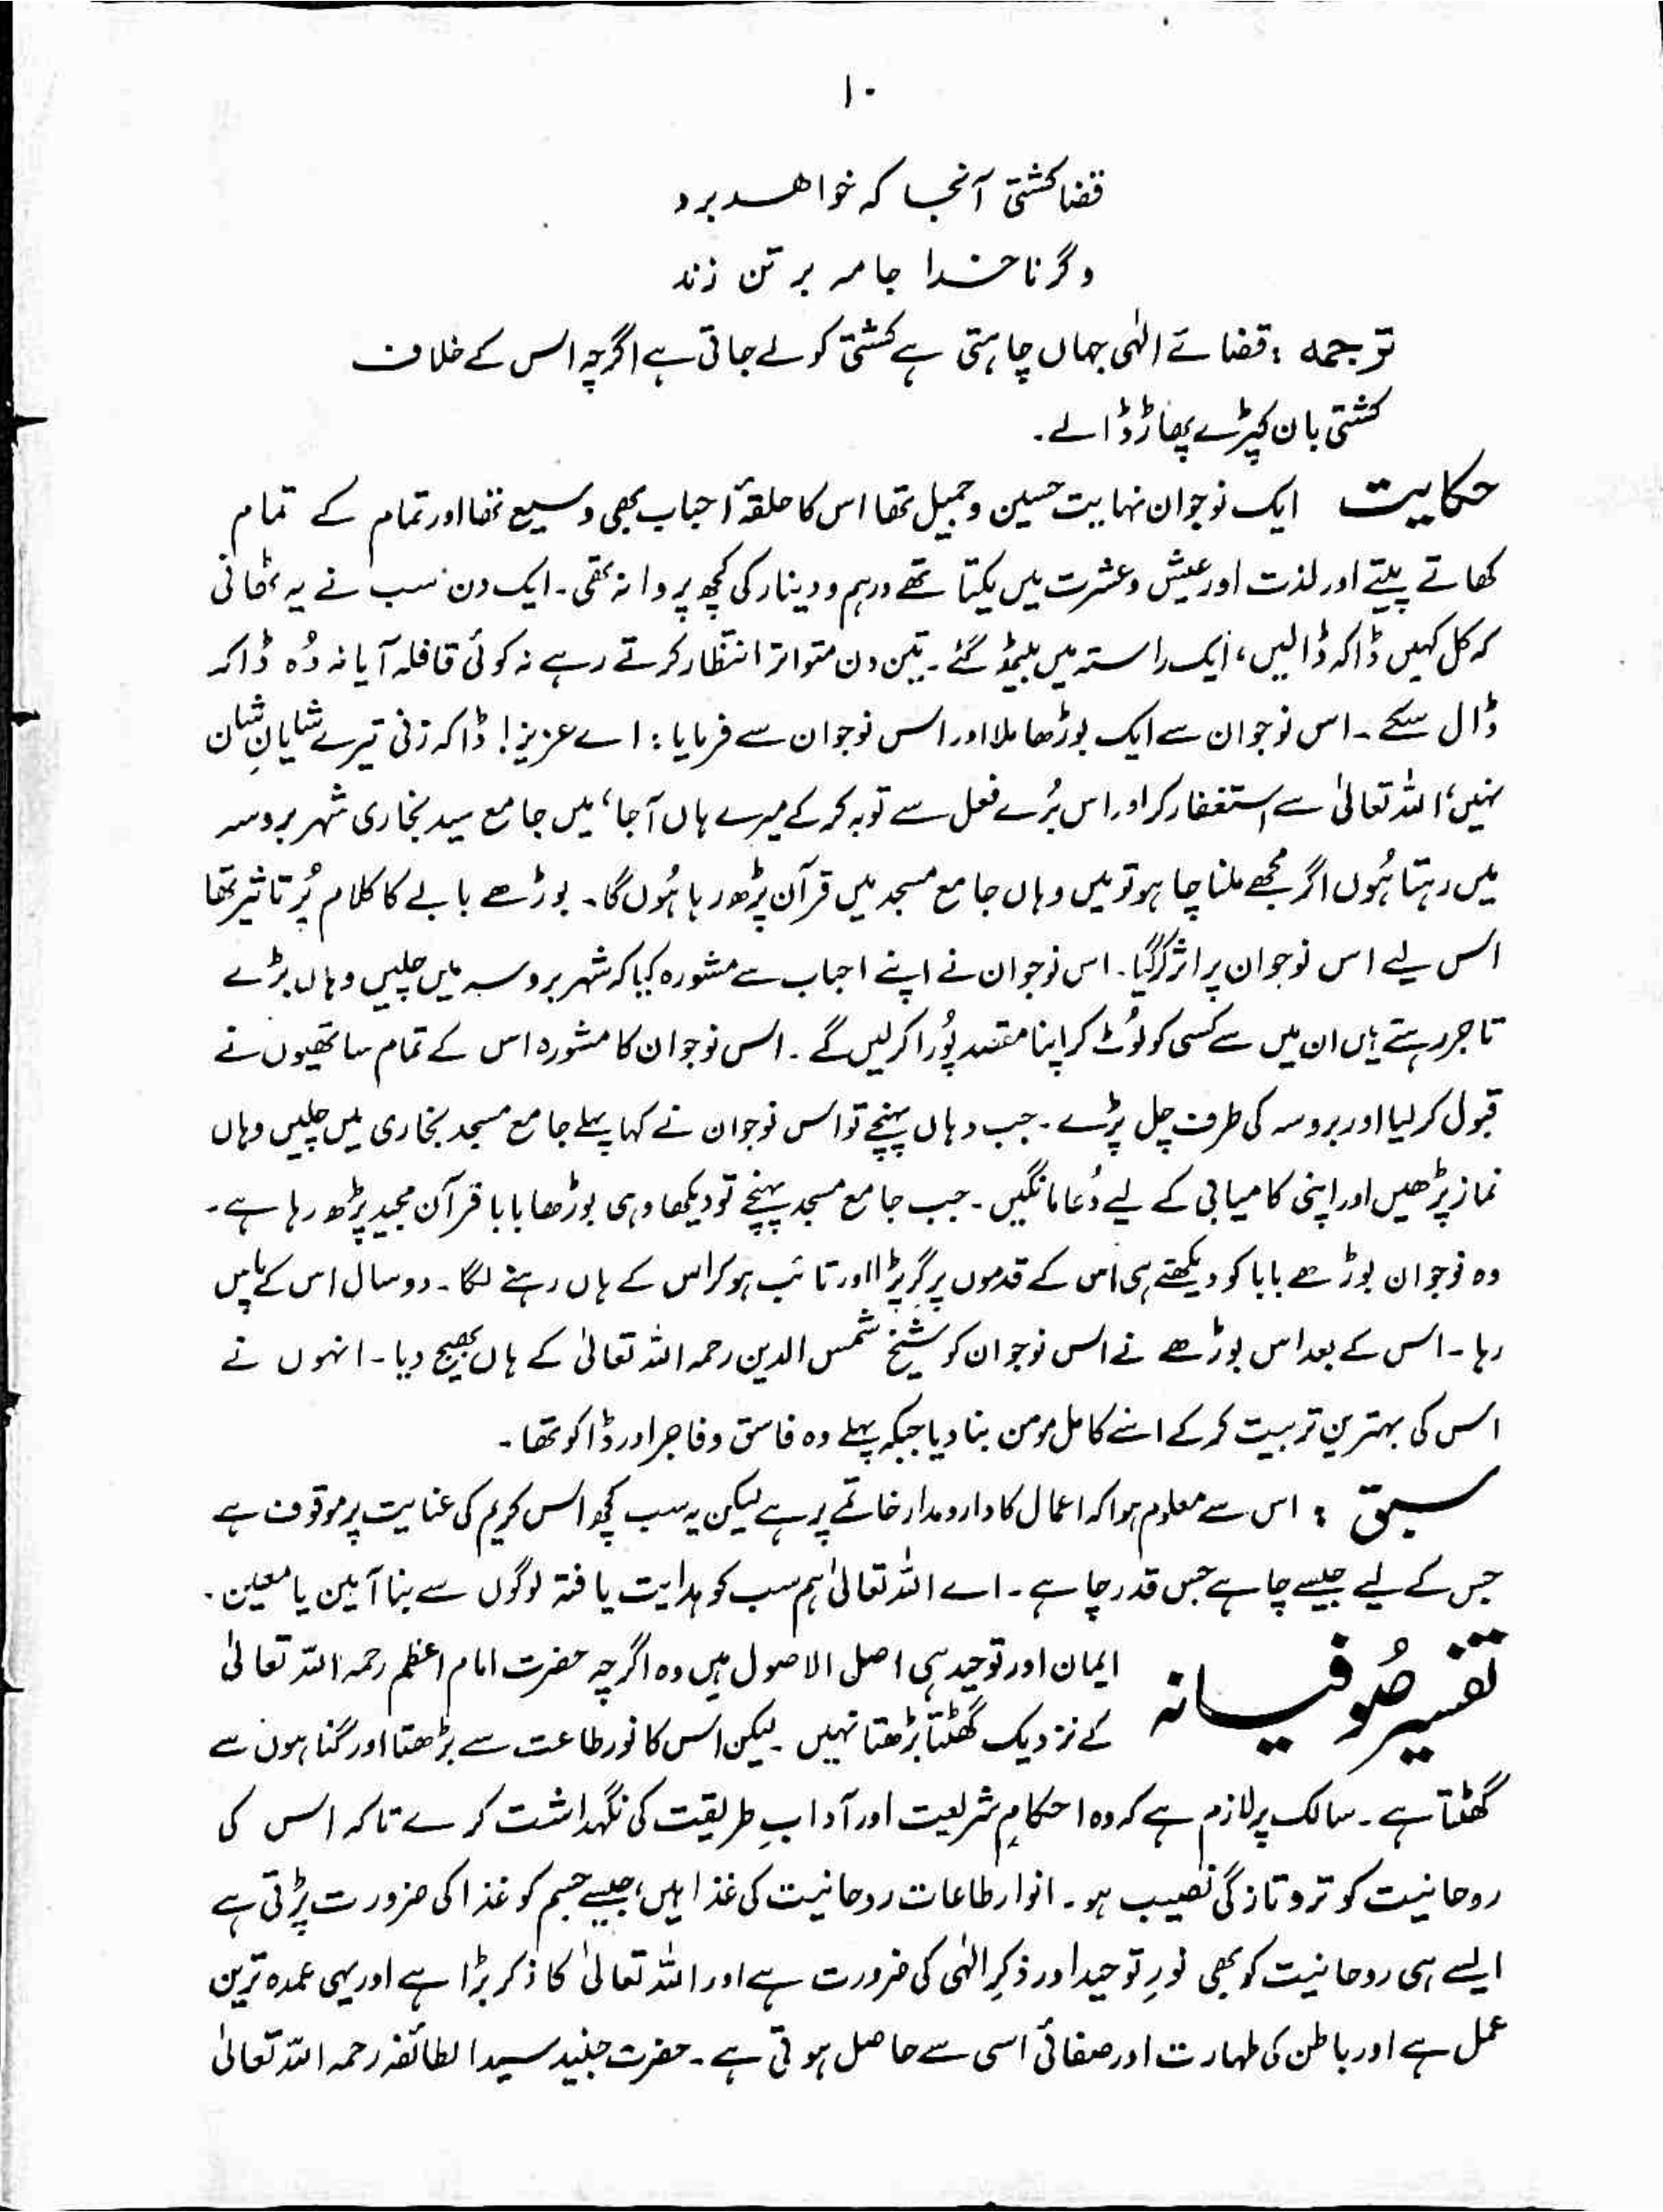 ۱۰
قضا کشتی آنجا کہ خواہد برد
وگر ناخدا جامہ بر تن زند
ترجمہ : قضائے الٰہی جہاں چاہتی ہے کشتی کو لے جاتی ہے اگرچہ اس کے خلاف
کشتی بان کپڑے پھاڑ ڈالے۔
حکایت ایک نوجوان نہایت حسین و جمیل تھا اس کا حلقۂ احباب بھی وسیع تھا اور تمام کے تمام
کھاتے پیتے اور لذت اور عیش و عشرت میں یکتا تھے درہم و دینار کی کچھ پروا نہ تھی۔ ایک دن سب نے یہ ٹھانی
کہ کل کہیں ڈاکہ ڈالیں، ایک راستہ میں بیٹھ گئے۔ تین دن متواتر انتظار کرتے رہے نہ کوئی قافلہ آیا نہ وُہ ڈاکہ
ڈال سکے۔ اس نوجوان سے ایک بوڑھا ملا اور اس نوجوان سے فرمایا : اے عزیز! ڈاکہ زنی تیرے شایانِ شان
نہیں، اللہ تعالیٰ سے استغفار کر اور اس بُرے فعل سے توبہ کر کے میرے ہاں آجا، میں جامع سید بخاری شہر بروسہ
میں رہتا ہُوں اگر مجھے ملنا چاہو تو میں وہاں جامع مسجد میں قرآن پڑھ رہا ہُوں گا۔ بوڑھے بابے کا کلام پُر تاثیر تھا
اس لیے اس نوجوان پر اثر کر گیا۔ اس نوجوان نے اپنے احباب سے مشورہ کیا کہ شہر بروسہ میں چلیں وہاں بڑے
تاجر رہتے ہیں ان میں سے کسی کو لُوٹ کر اپنا مقصد پُورا کر لیں گے۔ اس نوجوان کا مشورہ اس کے تمام ساتھیوں نے
قبول کر لیا اور بروسہ کی طرف چل پڑے۔ جب وہاں پہنچے تو اس نوجوان نے کہا پہلے جامع مسجد بخاری میں چلیں وہاں
نماز پڑھیں اور اپنی کامیابی کے لیے دُعا مانگیں۔ جب جامع مسجد پہنچے تو دیکھا وہی بوڑھا بابا قرآن مجید پڑھ رہا ہے۔
وہ نوجوان بوڑھے بابا کو دیکھتے ہی اس کے قدموں پر گر پڑا اور تائب ہو کر اس کے ہاں رہنے لگا۔ دو سال اس کے پاس
رہا۔ اس کے بعد اس بوڑھے نے اس نوجوان کو شیخ شمس الدین رحمہ اللہ تعالیٰ کے ہاں بھیج دیا۔ انہوں نے
اس کی بہترین تربیت کر کے اسے کامل مومن بنا دیا جبکہ پہلے وہ فاسق و فاجر اور ڈاکو تھا۔
سبق : اس سے معلوم ہوا کہ اعمال کا دارومدار خاتمے پر ہے لیکن یہ سب کچھ اس کریم کی عنایت پر موقوف ہے
جس کے لیے جیسے چاہے جس قدر چاہے۔ اے اللہ تعالیٰ ہم سب کو ہدایت یافتہ لوگوں سے بنا آمین یا معین۔
تفسیر صُوفیانہ ایمان اور توحید ہی اصل الاصول ہیں وہ اگرچہ حضرت امام اعظم رحمہ اللہ تعالیٰ
کے نزدیک گھٹتا بڑھتا نہیں۔ لیکن اس کا نور طاعت سے بڑھتا اور گناہوں سے
گھٹتا ہے۔ سالک پر لازم ہے کہ وہ احکامِ شریعت اور آدابِ طریقت کی نگہداشت کرے تاکہ اس کی
روحانیت کو تروتازگی نصیب ہو۔ انوار طاعات روحانیت کی غذا ہیں، جیسے جسم کو غذا کی ضرورت پڑتی ہے
ایسے ہی روحانیت کو بھی نورِ توحید اور ذکرِ الٰہی کی ضرورت ہے اور اللہ تعالیٰ کا ذکر بڑا ہے اور یہی عمدہ ترین
عمل ہے اور باطن کی طہارت اور صفائی اسی سے حاصل ہوتی ہے۔ حضرت جنید سید الطائفہ رحمہ اللہ تعالیٰ